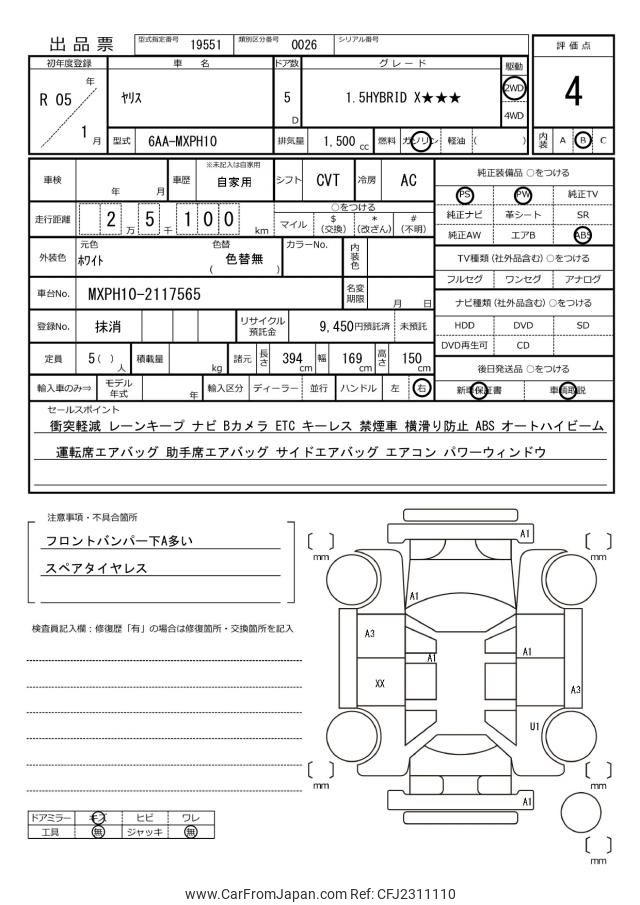 出品票 型式指定番号 19551 類別区分番号 0026 シリアル番号
評価点
4
内装 A B C
初年度登録 車名 ドア数 グレード 駆動
R 05 年 / 1 月 ヤリス 5 D 1.5HYBRID X★★★ 2WD 4WD
型式 6AA-MXPH10 排気量 1,500 cc 燃料 ガソリン 軽油 ( )
車検 年 月 車歴 ※未記入は自家用 自家用 シフト CVT 冷房 AC
走行距離 2 万 5 千 1 0 0 km
○をつける
マイル $ (交換) * (改ざん) # (不明)
外装色 元色 ホワイト 色替 ( 色替無 ) カラーNo. 内装色
車台No. MXPH10-2117565 名変期限 月 日
登録No. 抹消 リサイクル預託金 9,450円預託済 未預託
定員 5( ) 人 積載量 kg 諸元 長さ 394 cm 幅 169 cm 高さ 150 cm
輸入車のみ⇒ モデル年式 年 輸入区分 ディーラー 並行 ハンドル 左 右
純正装備品 ○をつける
PS PW 純正TV
純正ナビ 革シート SR
純正AW エアB ABS
TV種類 (社外品含む) ○をつける
フルセグ ワンセグ アナログ
ナビ種類 (社外品含む) ○をつける
HDD DVD SD
DVD再生可 CD
後日発送品 ○をつける
新車保証書 車輌取説
セールスポイント
衝突軽減 レーンキープ ナビ Bカメラ ETC キーレス 禁煙車 横滑り防止 ABS オートハイビーム
運転席エアバッグ 助手席エアバッグ サイドエアバッグ エアコン パワーウィンドウ
注意事項・不具合箇所
フロントバンパー下A多い
スペアタイヤレス
検査員記入欄:修復歴「有」の場合は修復箇所・交換箇所を記入
ドアミラー キズ ヒビ ワレ
工具 無 ジャッキ 無
A1
mm
mm
A1
A3
A1
A1
XX
A3
U1
mm
mm
A1
mm
www.CarFromJapan.com Ref: CFJ2311110